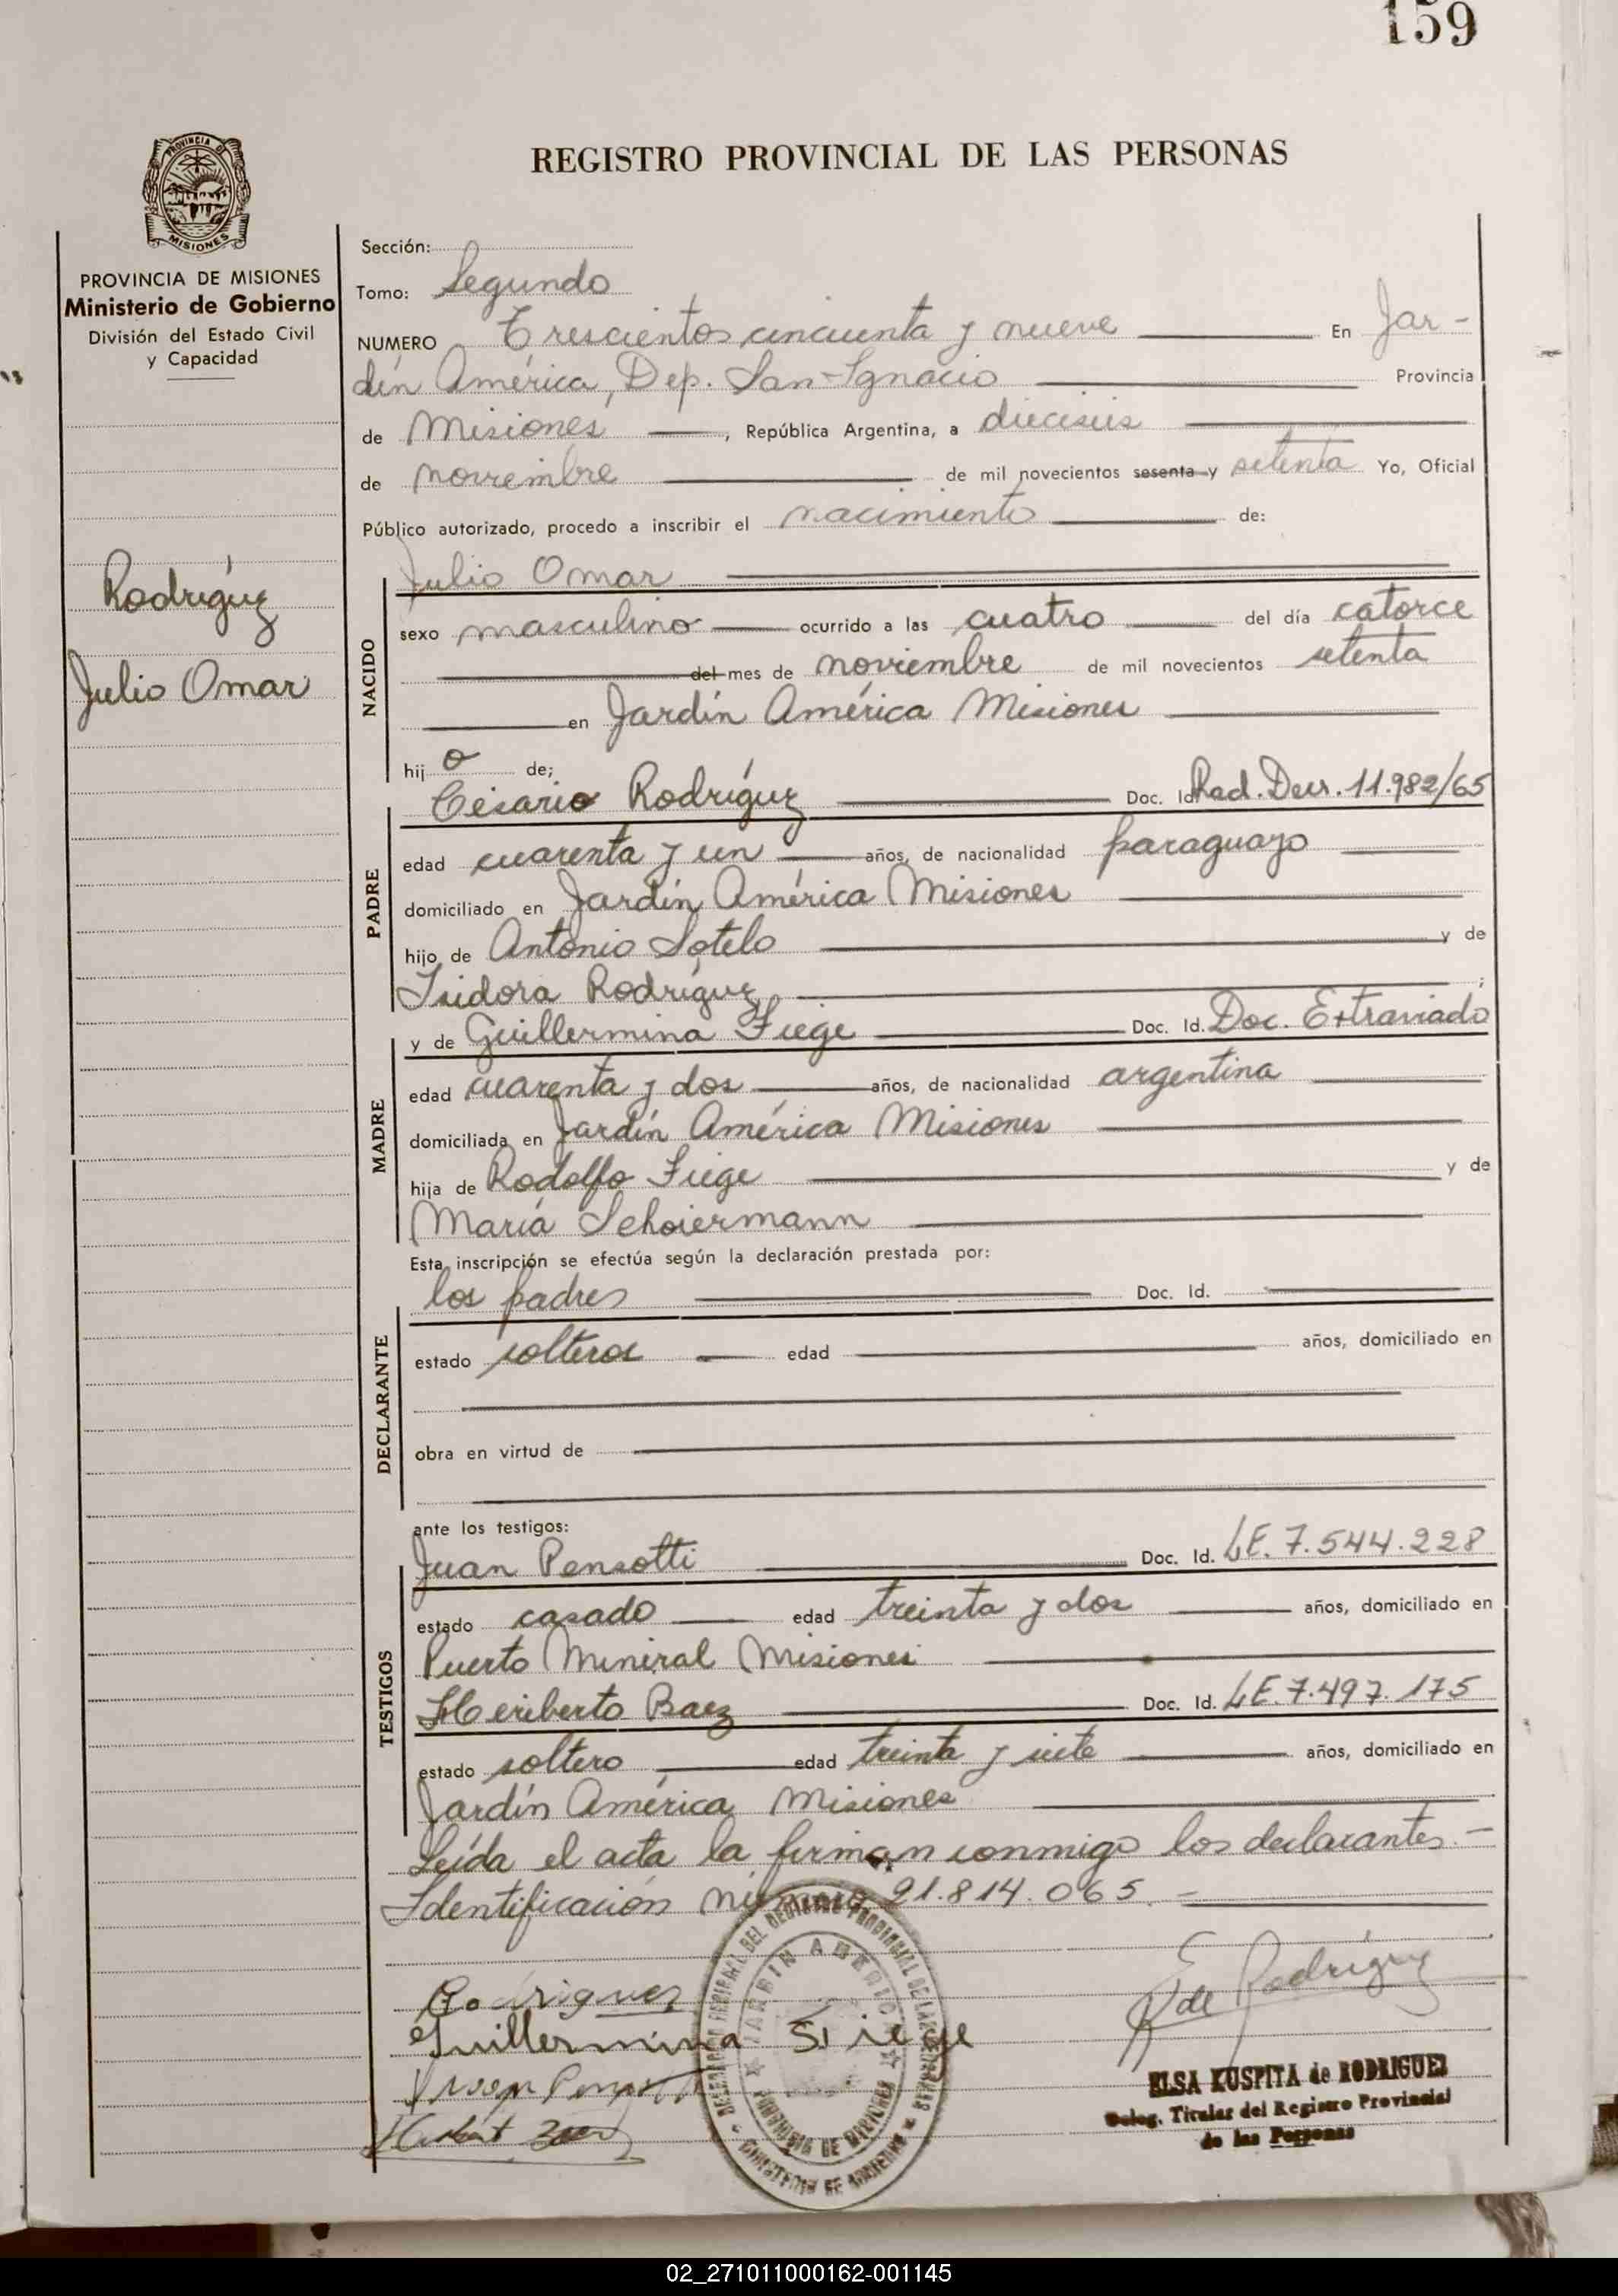 159
REGISTRO PROVINCIAL DE LAS PERSONAS
PROVINCIA DE MISIONES
Ministerio de Gobierno
División del Estado Civil
y Capacidad
Rodríguez
Julio Omar
Sección:
Tomo: Segundo
NUMERO Trescientos cincuenta y nueve En Jar-
dín América, Dep. San Ignacio Provincia
de Misiones, República Argentina, a dieciseis
de noviembre de mil novecientos sesenta y setenta Yo, Oficial
Público autorizado, procedo a inscribir el nacimiento de:
Julio Omar
NACIDO
sexo masculino ocurrido a las cuatro del día catorce
del mes de noviembre de mil novecientos setenta
en Jardín América Misiones
hijo de;
Cesario Rodríguez Doc. Id. Rad. Decr. 11.982/65
PADRE
edad cuarenta y un años, de nacionalidad paraguayo
domiciliado en Jardín América Misiones
hijo de Antonio Sotelo y de
Isidora Rodríguez;
y de Guillermina Fiege Doc. Id. Doc. Extraviado
MADRE
edad cuarenta y dos años, de nacionalidad argentina
domiciliada en Jardín América Misiones
hija de Rodolfo Fiege y de
María Schoiermann
Esta inscripción se efectúa según la declaración prestada por:
los padres Doc. Id.
DECLARANTE
estado solteros edad años, domiciliado en
obra en virtud de
ante los testigos:
Juan Pensotti Doc. Id. LE. 7.544.228
TESTIGOS
estado casado edad treinta y dos años, domiciliado en
Puerto Mineral Misiones
Heriberto Baez Doc. Id. LE. 7.497.175
estado soltero edad treinta y siete años, domiciliado en
Jardín América Misiones
Leída el acta la firman conmigo los declarantes.-
Identificación número 21.814.065.-
Rodriguez
Guillermina Fiege
E K de Rodríguez
ELSA KUSPITA de RODRIGUEZ
Deleg. Titular del Registro Provincial
de las Personas
02_271011000162-001145